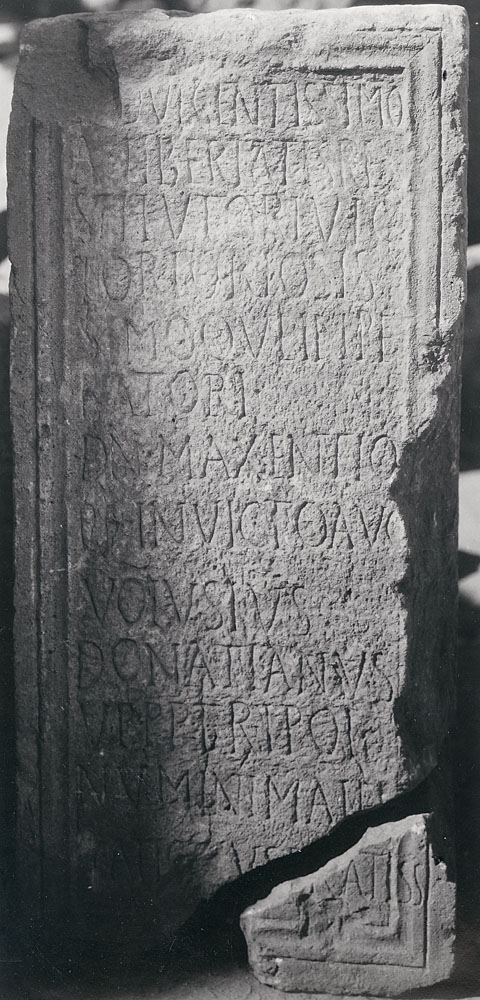 VLGENTISSIMO
AC LIBERTATIS RE
STITVTORI VIC
TORIOSIS
SIMOQVE IMPE
RATORI
DN MAXENTIO
PF INVICTO AVG
VOLVSIVS
DONATIANVS
VPPP TRIPOL
NVMINI MAIES
ATISS